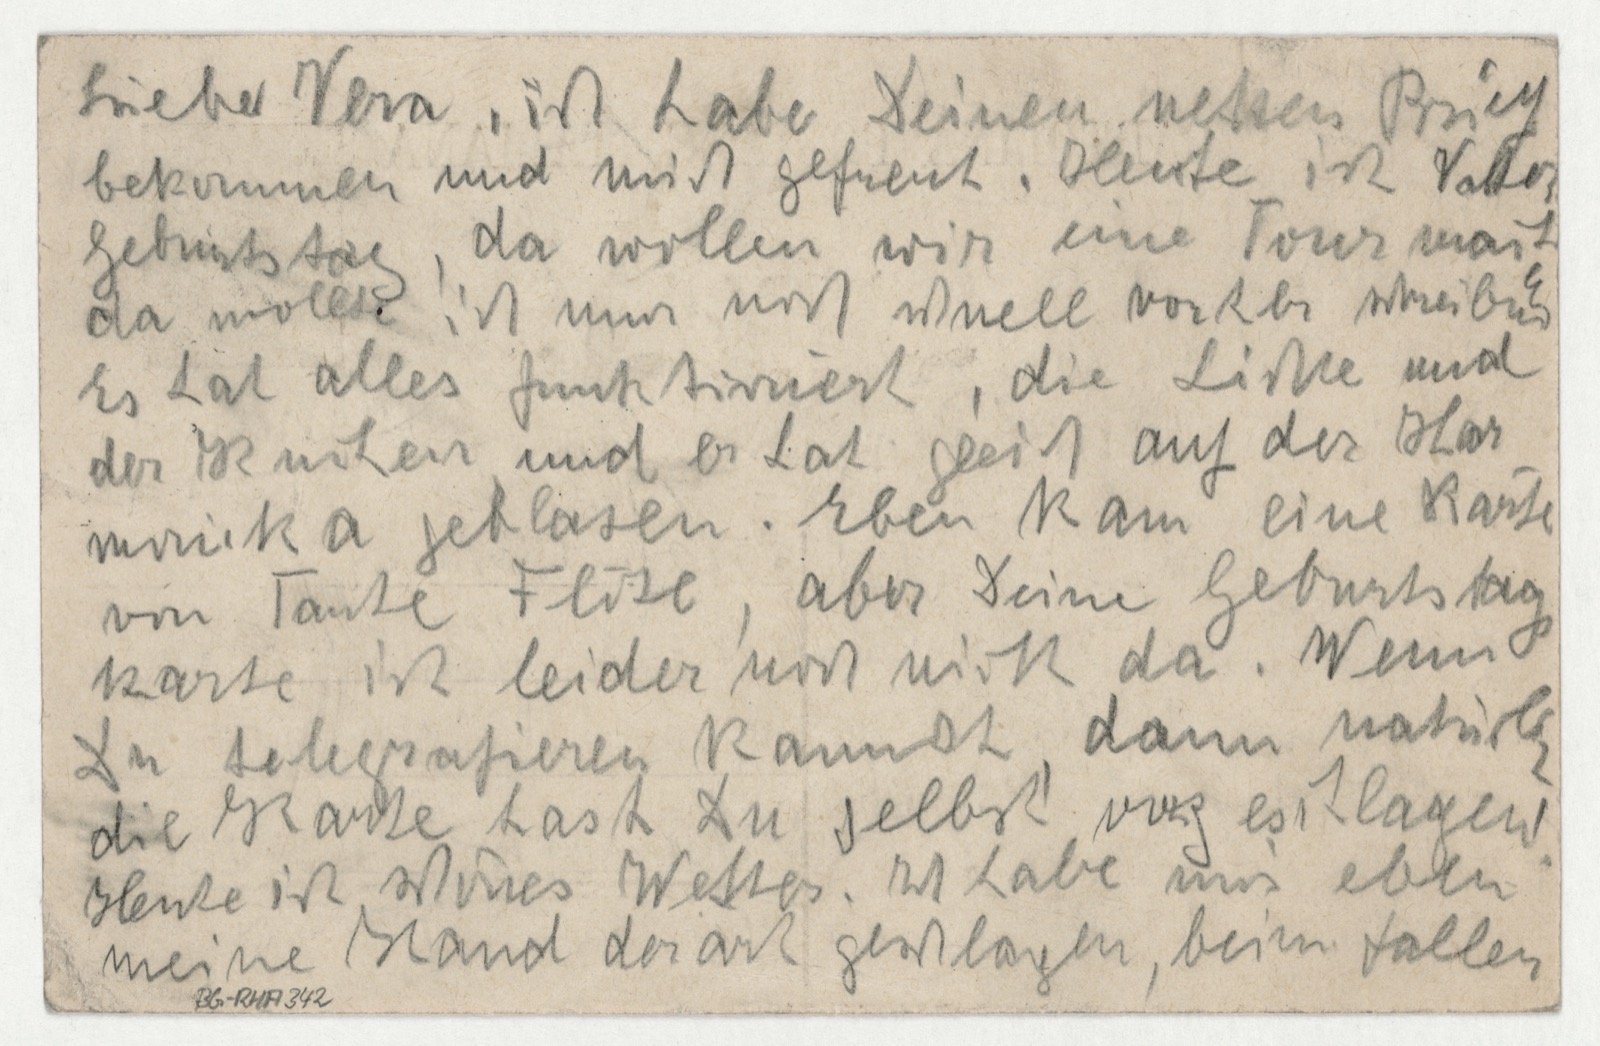 Lieber Vera, ich habe Deinen netten Brief
bekommen und mich gefreut. Heute ist Vaters
Geburtstag, da wollen wir eine Tour mach
da wollte ich nur noch schnell vorher schreiben
Es hat alles funktioniert, die Lichte und
der Kuchen und er hat gleich auf der Har
monika geblasen. Eben kam eine Karte
von Tante Flöte, aber Deine Geburtstag
karte ist leider noch nicht da. Wenn
Du telegrafieren kannst, dann natürlich
die Karte hast Du selbst vorgeschlagen!
Heute ist schönes Wetter. Ich habe mir eben
meine Hand derart geschlagen, beim fallen
BG-RHA 342